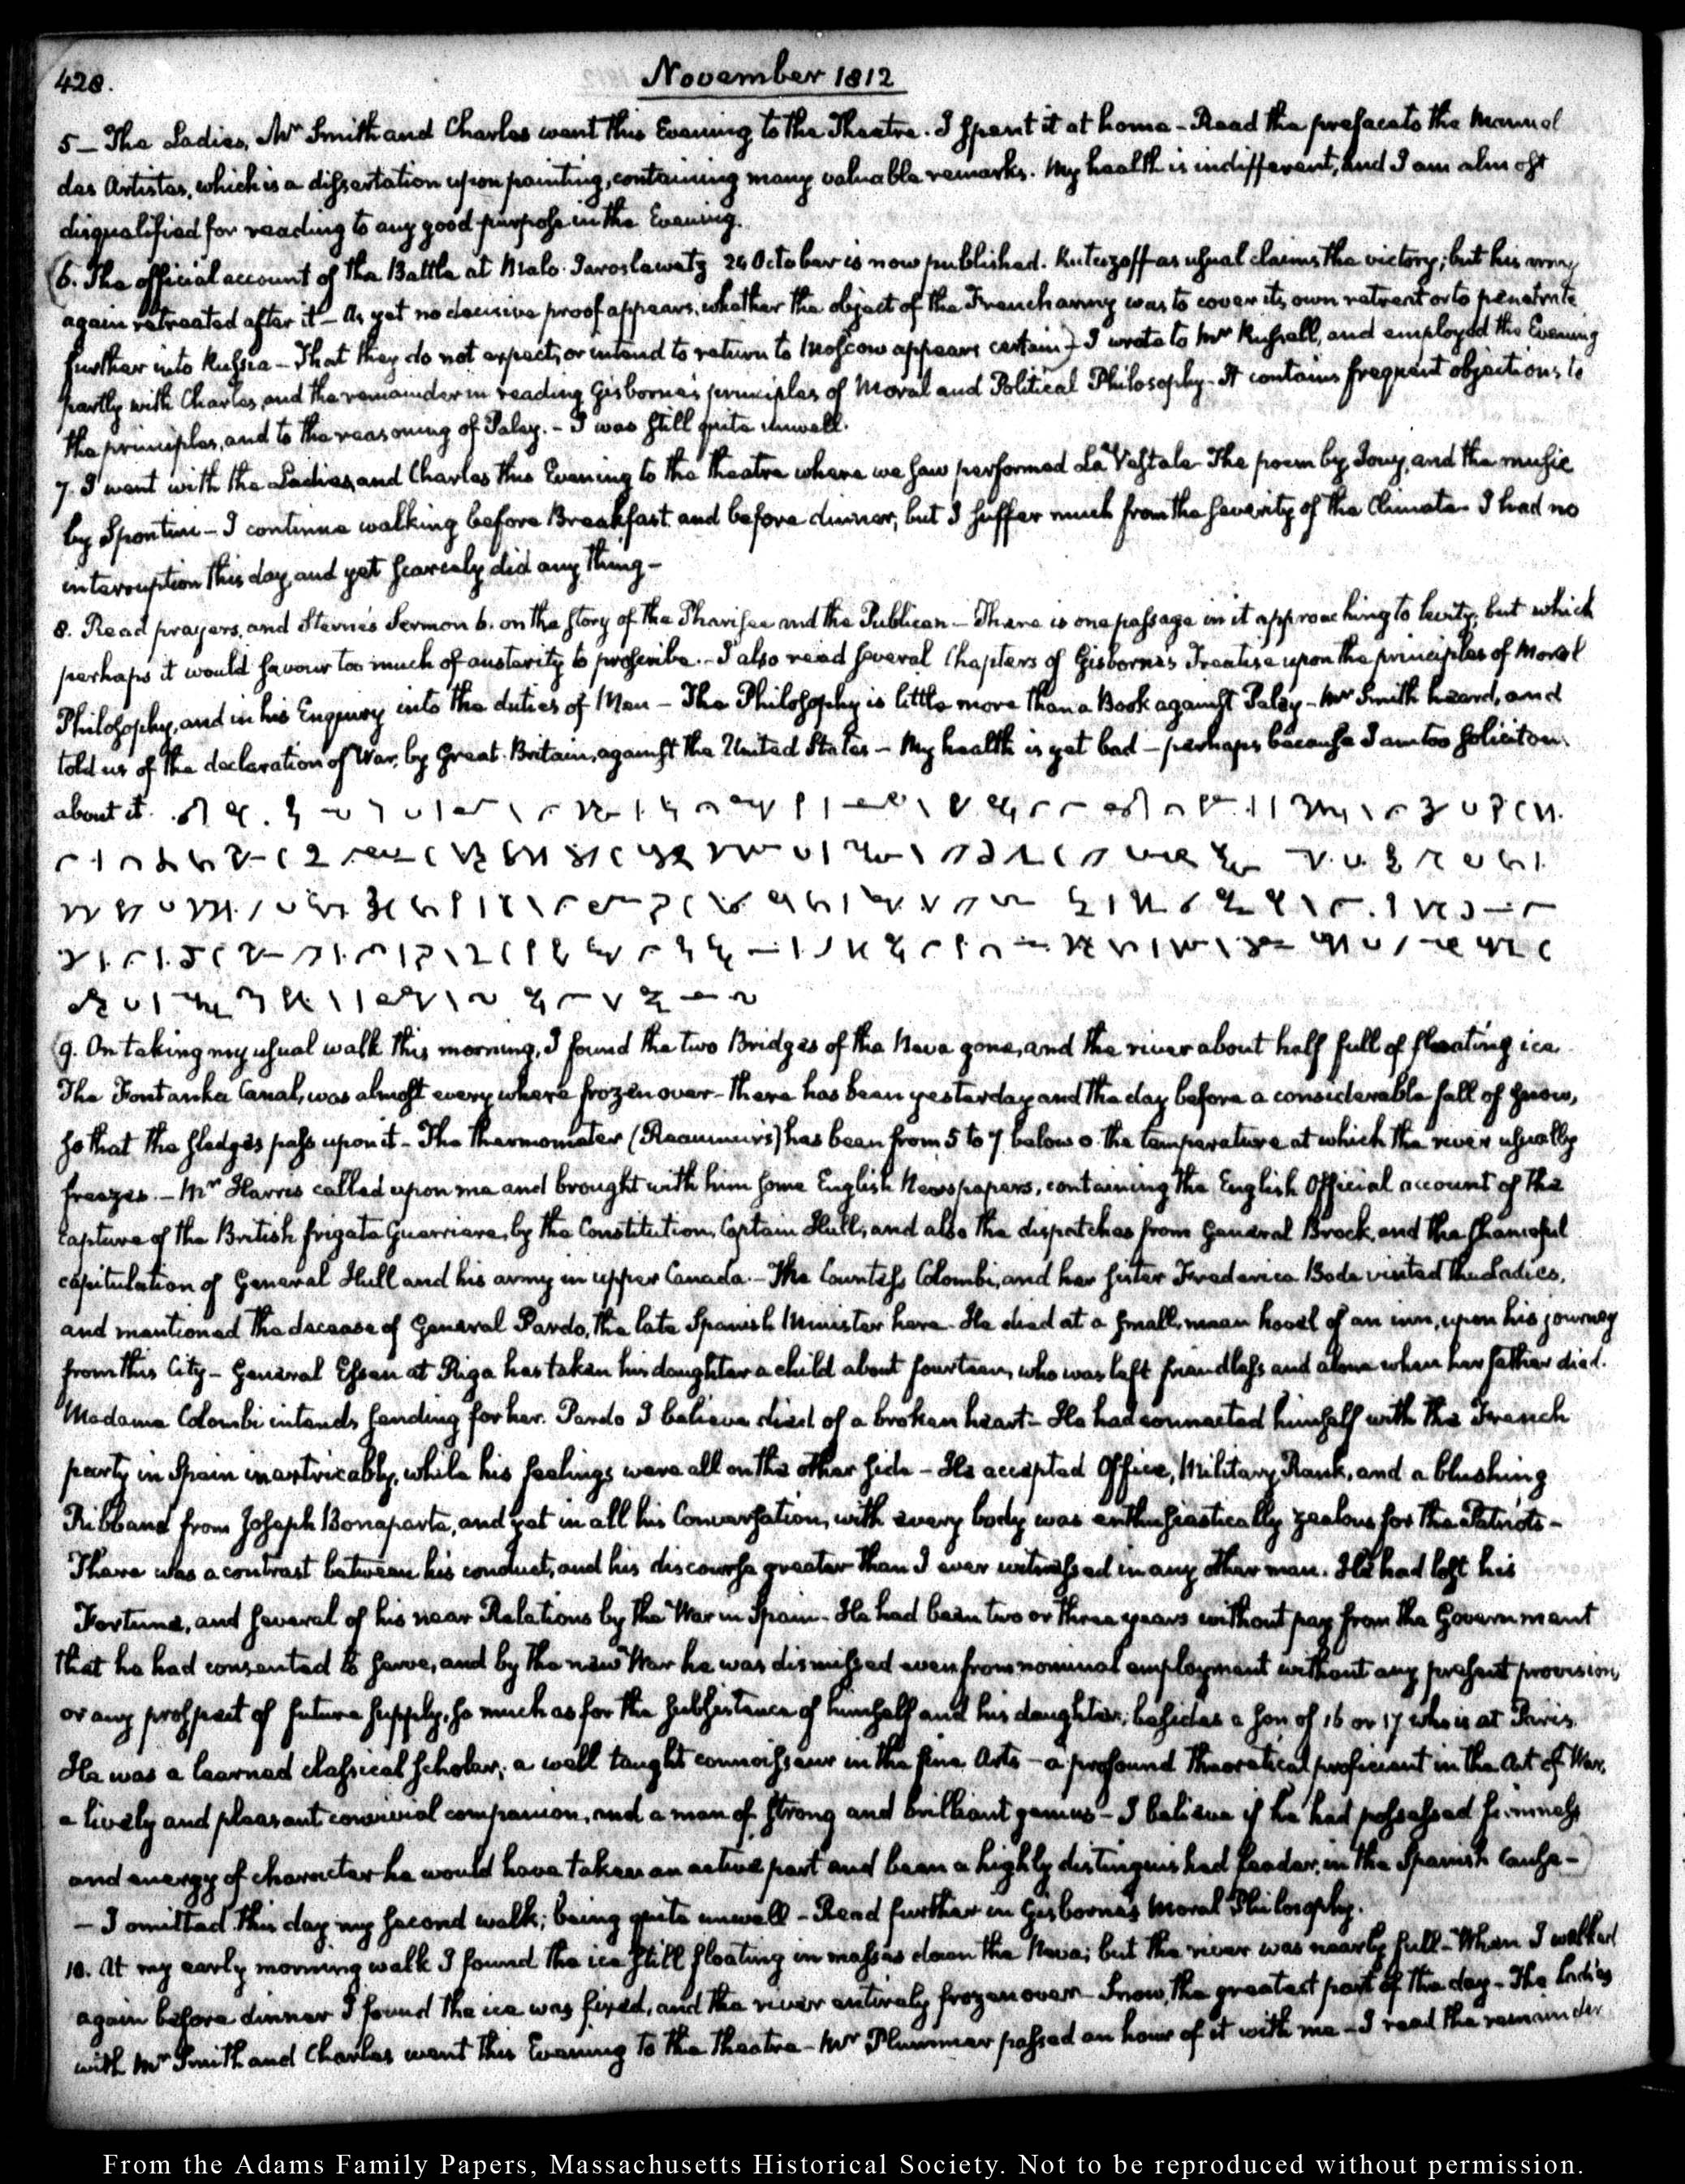 428.
November 1812
5 — The Ladies, Mr Smith and Charles went this Evening to the Theatre. I spent it at home - Read the preface to the Manuel
des Artistes, which is a dissertation upon painting, containing many valuable remarks. My health is indifferent, and I am almost
disqualified for reading to any good purpose in the Evening.
(6. The official account of the Battle at Malo-Jaroslawetz 24 October is now published. Kutuzoff as usual claims the victory; but his army
again retreated after it — As yet no decisive proof appears, whether the object of the French army was to cover its own retreat or to penetrate
further into Russia — That they do not expect, or intend to return to Moscow appears certain) — I wrote to Mr Russell, and employed the Evening
partly with Charles, and the remainder in reading Gisborne's principles of Moral and Political Philosophy — It contains frequent objections to
the principles, and to the reasoning of Paley. — I was still quite unwell.
7. I went with the Ladies, and Charles this Evening to the theatre where we saw performed La Vestale - The poem by Jouy, and the music
by Spontini — I continue walking before Breakfast and before dinner, but I suffer much from the severity of the Climate - I had no
interruption this day, and yet scarcely did any thing —
8. Read prayers, and Sterne's Sermon 6. on the story of the Pharisee and the Publican — There is one passage in it approaching to levity, but which
perhaps it would savour too much of austerity to proscribe. — I also read several Chapters of Gisborne's Treatise upon the principles of Moral
Philosophy, and in his Enquiry into the duties of Men — The Philosophy is little more than a Book against Paley - Mr Smith heard, and
told us of the declaration of War, by Great-Britain, against the United States — My health is yet bad — perhaps because I am too solicitous
about it.
(9. On taking my usual walk this morning, I found the two Bridges of the Neva gone, and the river about half full of floating ice.
The Fontanka Canal, was almost every where frozen over - there has been yesterday and the day before a considerable fall of snow,
so that the sledges pass upon it - The thermometer (Reaumur's) has been from 5 to 7 below 0. the temperature at which the river usually
freezes. — Mr Harris called upon me and brought with him some English Newspapers, containing the English Official account of the
capture of the British frigate Guerriere, by the Constitution, Captain Hull, and also the dispatches from General Brock, and the shameful
capitulation of General Hull and his army in upper Canada. — The Countess Colombi, and her sister Frederica Bode visited the Ladies,
and mentioned the decease of General Pardo, the late Spanish Minister here - He died at a small, mean hovel of an inn, upon his journey
from this City — General Essen at Riga has taken his daughter a child about fourteen, who was left friendless and alone when her father died.
Madame Colombi intends sending for her. Pardo I believe died of a broken heart — He had connected himself with the French
party in Spain inextricably, while his feelings were all on the other side — He accepted Office, Military Rank, and a blushing
Ribband from Joseph Bonaparte, and yet in all his Conversation, with every body was enthusiastically zealous for the Patriots —
There was a contrast between his conduct, and his discourse greater than I ever witnessed in any other man. He had lost his
Fortune, and several of his near Relations by the War in Spain - He had been two or three years without pay from the Government
that he had consented to serve, and by the new War he was dismissed even from nominal employment without any present provision,
or any prospect of future supply, so much as for the subsistence of himself and his daughter, besides a son of 16 or 17 who is at Paris.
He was a learned classical scholar; a well taught connoisseur in the fine Arts — a profound theoretical proficient in the Art of War,
a lively and pleasant convivial companion, and a man of strong and brilliant genius — I believe if he had possessed firmness
and energy of character he would have taken an active part and been a highly distinguished leader, in the Spanish Cause —)
— I omitted this day my second walk; being quite unwell — Read further in Gisborne's Moral Philosophy.
10. At my early morning walk I found the ice still floating in masses down the Neva; but the river was nearly full — When I walked
again before dinner I found the ice was fixed, and the river entirely frozen over — Snow, the greatest part of the day — The Ladies
with Mr Smith and Charles went this Evening to the Theatre — Mr Plummer passed an hour of it with me — I read the remainder
From the Adams Family Papers, Massachusetts Historical Society. Not to be reproduced without permission.